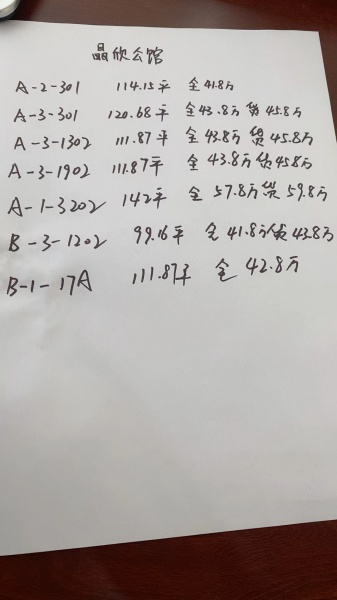 晶欣公馆
A-2-301 114.15平 全41.8万
A-3-301 120.68平 全43.8万 贷45.8万
A-3-1302 111.87平 全43.8万 贷45.8万
A-3-1902 111.87平 全43.8万 贷45.8万
A-1-3202 142平 全57.8万 贷59.8万
B-3-1202 99.16平 全41.8万 贷43.8万
B-1-17A 111.87平 全42.8万